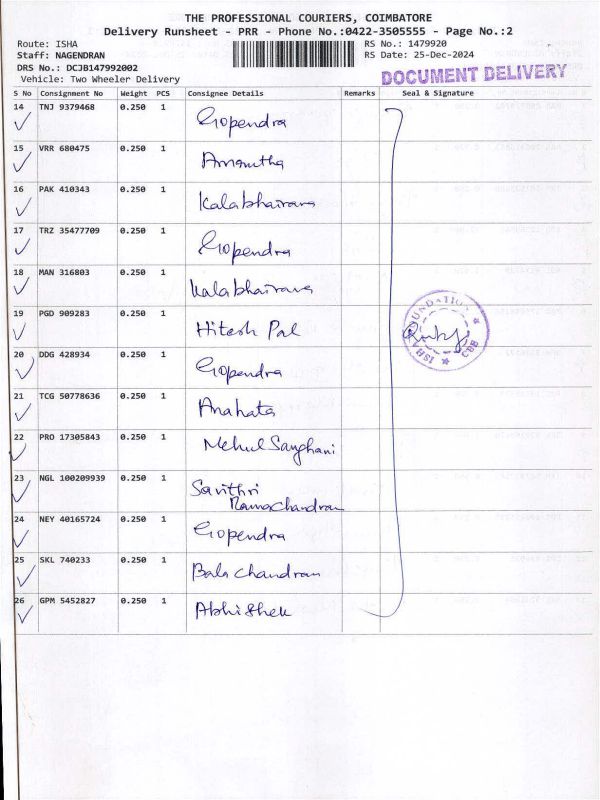 THE PROFESSIONAL COURIERS, COIMBATORE
Delivery Runsheet - PRR - Phone No.:0422-3505555 - Page No.:2
Route: ISHA RS No.: 1479920
Staff: NAGENDRAN RS Date: 25-Dec-2024
DRS No.: DCJB147992002
Vehicle: Two Wheeler Delivery
DOCUMENT DELIVERY
S No Consignment No Weight PCS Consignee Details Remarks Seal & Signature
14 TNJ 9379468 0.250 1 Gopendra
15 VRR 680475 0.250 1 Anamtha
16 PAK 410343 0.250 1 Kalabhairava
17 TRZ 35477709 0.250 1 Gopendra
18 MAN 316803 0.250 1 Kalabhairava
19 PGD 909283 0.250 1 Hitesh Pal
ISHA FOUNDATION CBB
20 DDG 428934 0.250 1 Gopendra
21 TCG 50778636 0.250 1 Anahata
22 PRO 17305843 0.250 1 Mehul Sanghani
23 NGL 100209939 0.250 1 Savithri
Ramachandran
24 NEY 40165724 0.250 1 Gopendra
25 SKL 740233 0.250 1 Bala chandran
26 GPM 5452827 0.250 1 Abhishek